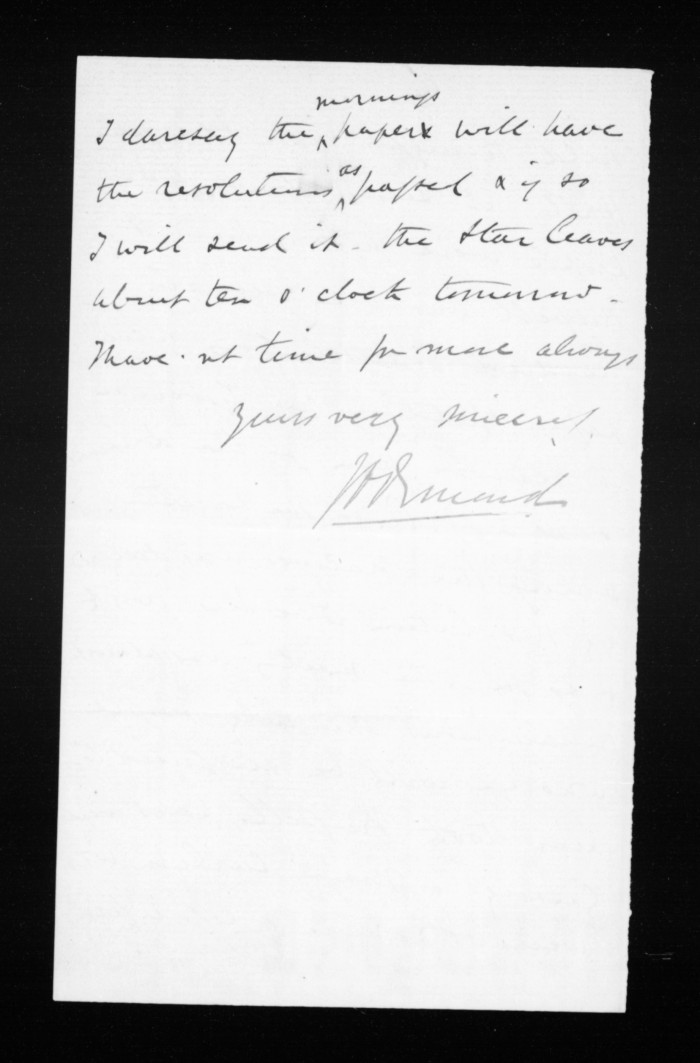 mornings
I daresay the ‸ paper will have
the resolutions ‸ as passed & if so
I will send it - the Star leaves
about ten o'clock tomorrow -
I have not time for more always
yours very sincerely
JD Ormond